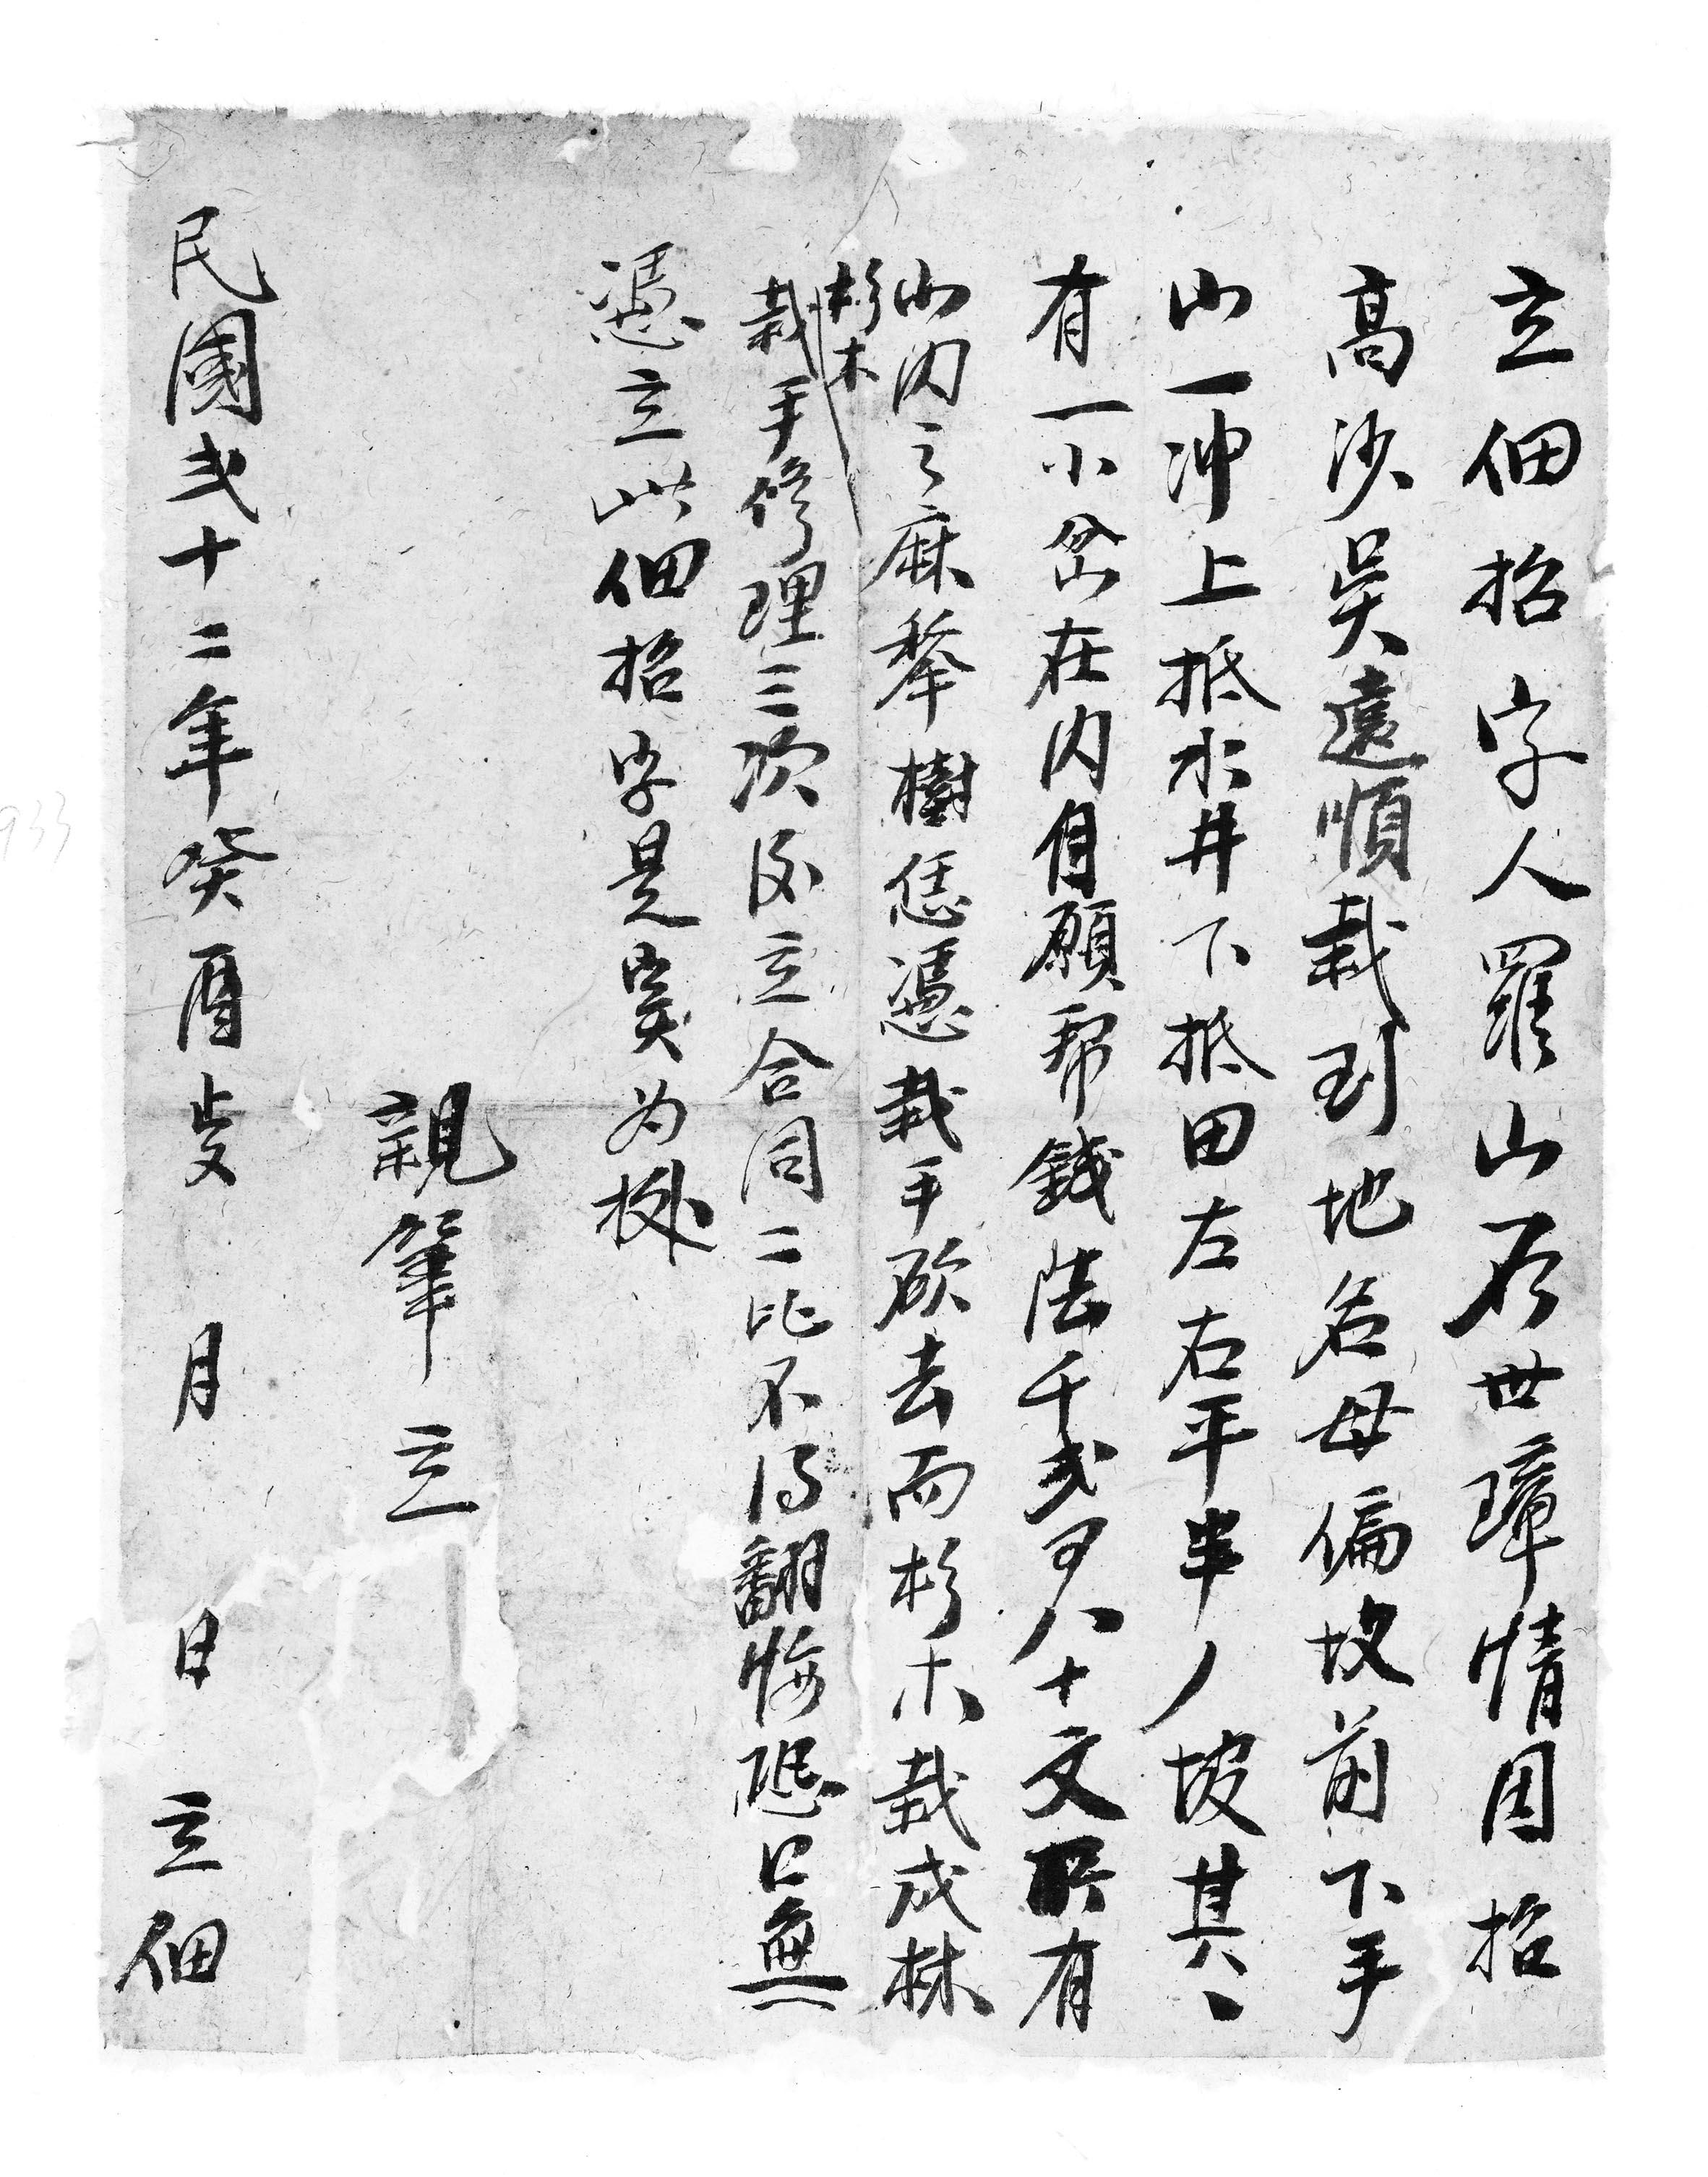 立佃招字人羅山石世璋情因招
高沙吳遠順栽到地名母偏坡前下手
山一冲上抵水井下抵田左右平半丿坡其
有一小岔在内自願帮錢陆千弍百八十文所有
山内之麻栗樹恁憑栽手砍去而杉木栽成林
杉木
栽手修理三次後立合同二比不得翻悔恐口無
憑立此佃招字是實为據
親筆立
民國弍十二年癸酉歲月日立佃
933